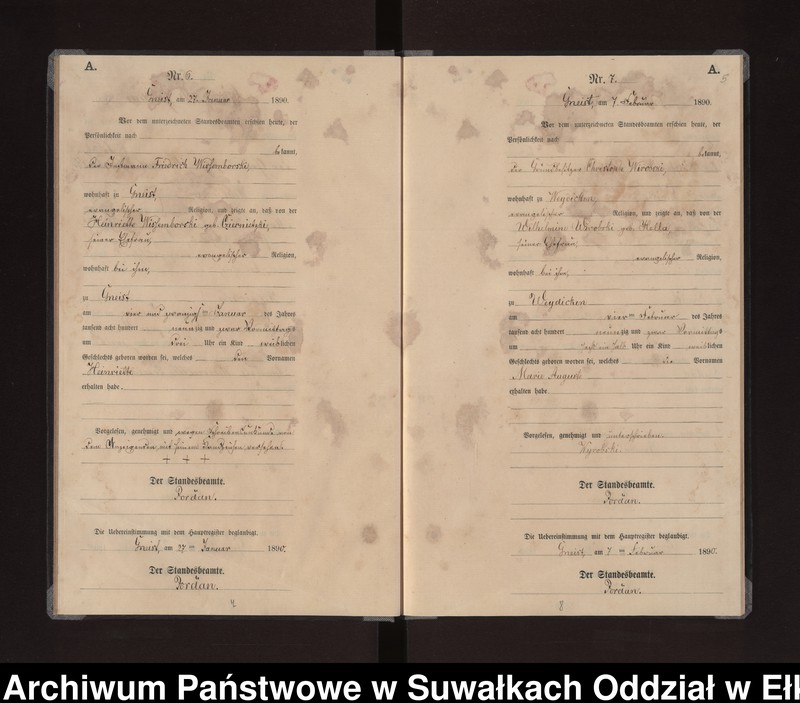 A.
Nr. 6.
Gneist, am 27. Januar 1890.
Vor dem unterzeichneten Standesbeamten erschien heute, der
Persönlichkeit nach
bekannt,
der Friedrich
wohnhaft zu Gneist,
evangelischer Religion, und zeigte an, daß von der
Henriette geb.
seiner Ehefrau,
evangelischer Religion,
wohnhaft bei ihm,
zu Gneist
am vier und zwanzigsten Januar des Jahres
tausend acht hundert neunzig und zwar Vormittags
um drei Uhr ein Kind weiblichen
Geschlechts geboren worden sei, welches den Vornamen
Heinriette
erhalten habe.
Vorgelesen, genehmigt und wegen von
dem Anzeigenden mit seinem Handzeichen versehen.
+ + +
Der Standesbeamte.
Pordan.
Die Uebereinstimmung mit dem Hauptregister beglaubigt.
Gneist, am 27ten Januar 1890.
Der Standesbeamte.
Pordan.
7
A.
5
Nr. 7.
Gneist, am 7. Februar 1890.
Vor dem unterzeichneten Standesbeamten erschien heute, der
Persönlichkeit nach
bekannt,
der Grundbesitzer Christoph
wohnhaft zu Weydicken,
evangelischer Religion, und zeigte an, daß von der
Wilhelmine geb.
seiner Ehefrau,
evangelischer Religion,
wohnhaft bei ihm,
zu Weydicken
am vierten Februar des Jahres
tausend acht hundert neunzig und zwar Vormittags
um Uhr ein Kind weiblichen
Geschlechts geboren worden sei, welches die Vornamen
Marie Auguste
erhalten habe.
Vorgelesen, genehmigt und unterschrieben.
Der Standesbeamte.
Pordan.
Die Uebereinstimmung mit dem Hauptregister beglaubigt.
Gneist, am 7ten Februar 1890.
Der Standesbeamte.
Pordan.
8
Archiwum Państwowe w Suwałkach Oddział w Ełk